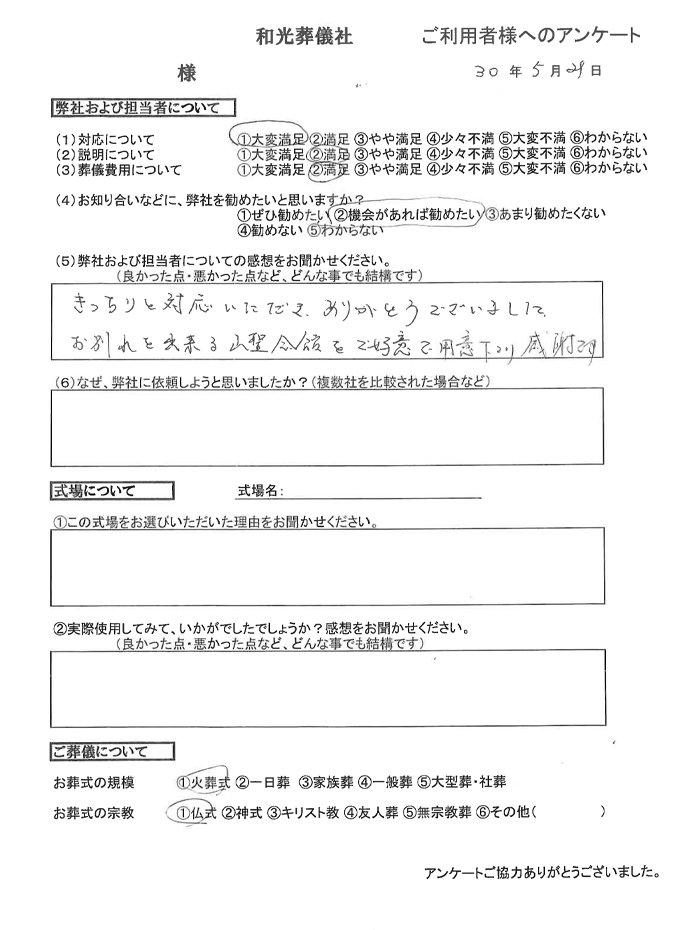 和光葬儀社 ご利用者様へのアンケート
様 30年5月29日
弊社および担当者について
(1)対応について ①大変満足 ②満足 ③やや満足 ④少々不満 ⑤大変不満 ⑥わからない
(2)説明について ①大変満足 ②満足 ③やや満足 ④少々不満 ⑤大変不満 ⑥わからない
(3)葬儀費用について ①大変満足 ②満足 ③やや満足 ④少々不満 ⑤大変不満 ⑥わからない
(4)お知り合いなどに、弊社を勧めたいと思いますか?
①ぜひ勧めたい ②機会があれば勧めたい ③あまり勧めたくない
④勧めない ⑤わからない
(5)弊社および担当者についての感想をお聞かせください。
(良かった点・悪かった点など、どんな事でも結構です)
きっちりと対応いただき、ありがとうございました、
お別れを出来る 聖念館をご好意で用意下さり感謝です
(6)なぜ、弊社に依頼しようと思いましたか?(複数社を比較された場合など)
式場について 式場名:
①この式場をお選びいただいた理由をお聞かせください。
②実際使用してみて、いかがでしたでしょうか?感想をお聞かせください。
(良かった点・悪かった点など、どんな事でも結構です)
ご葬儀について
お葬式の規模 ①火葬式 ②一日葬 ③家族葬 ④一般葬 ⑤大型葬・社葬
お葬式の宗教 ①仏式 ②神式 ③キリスト教 ④友人葬 ⑤無宗教葬 ⑥その他( )
アンケートご協力ありがとうございました。